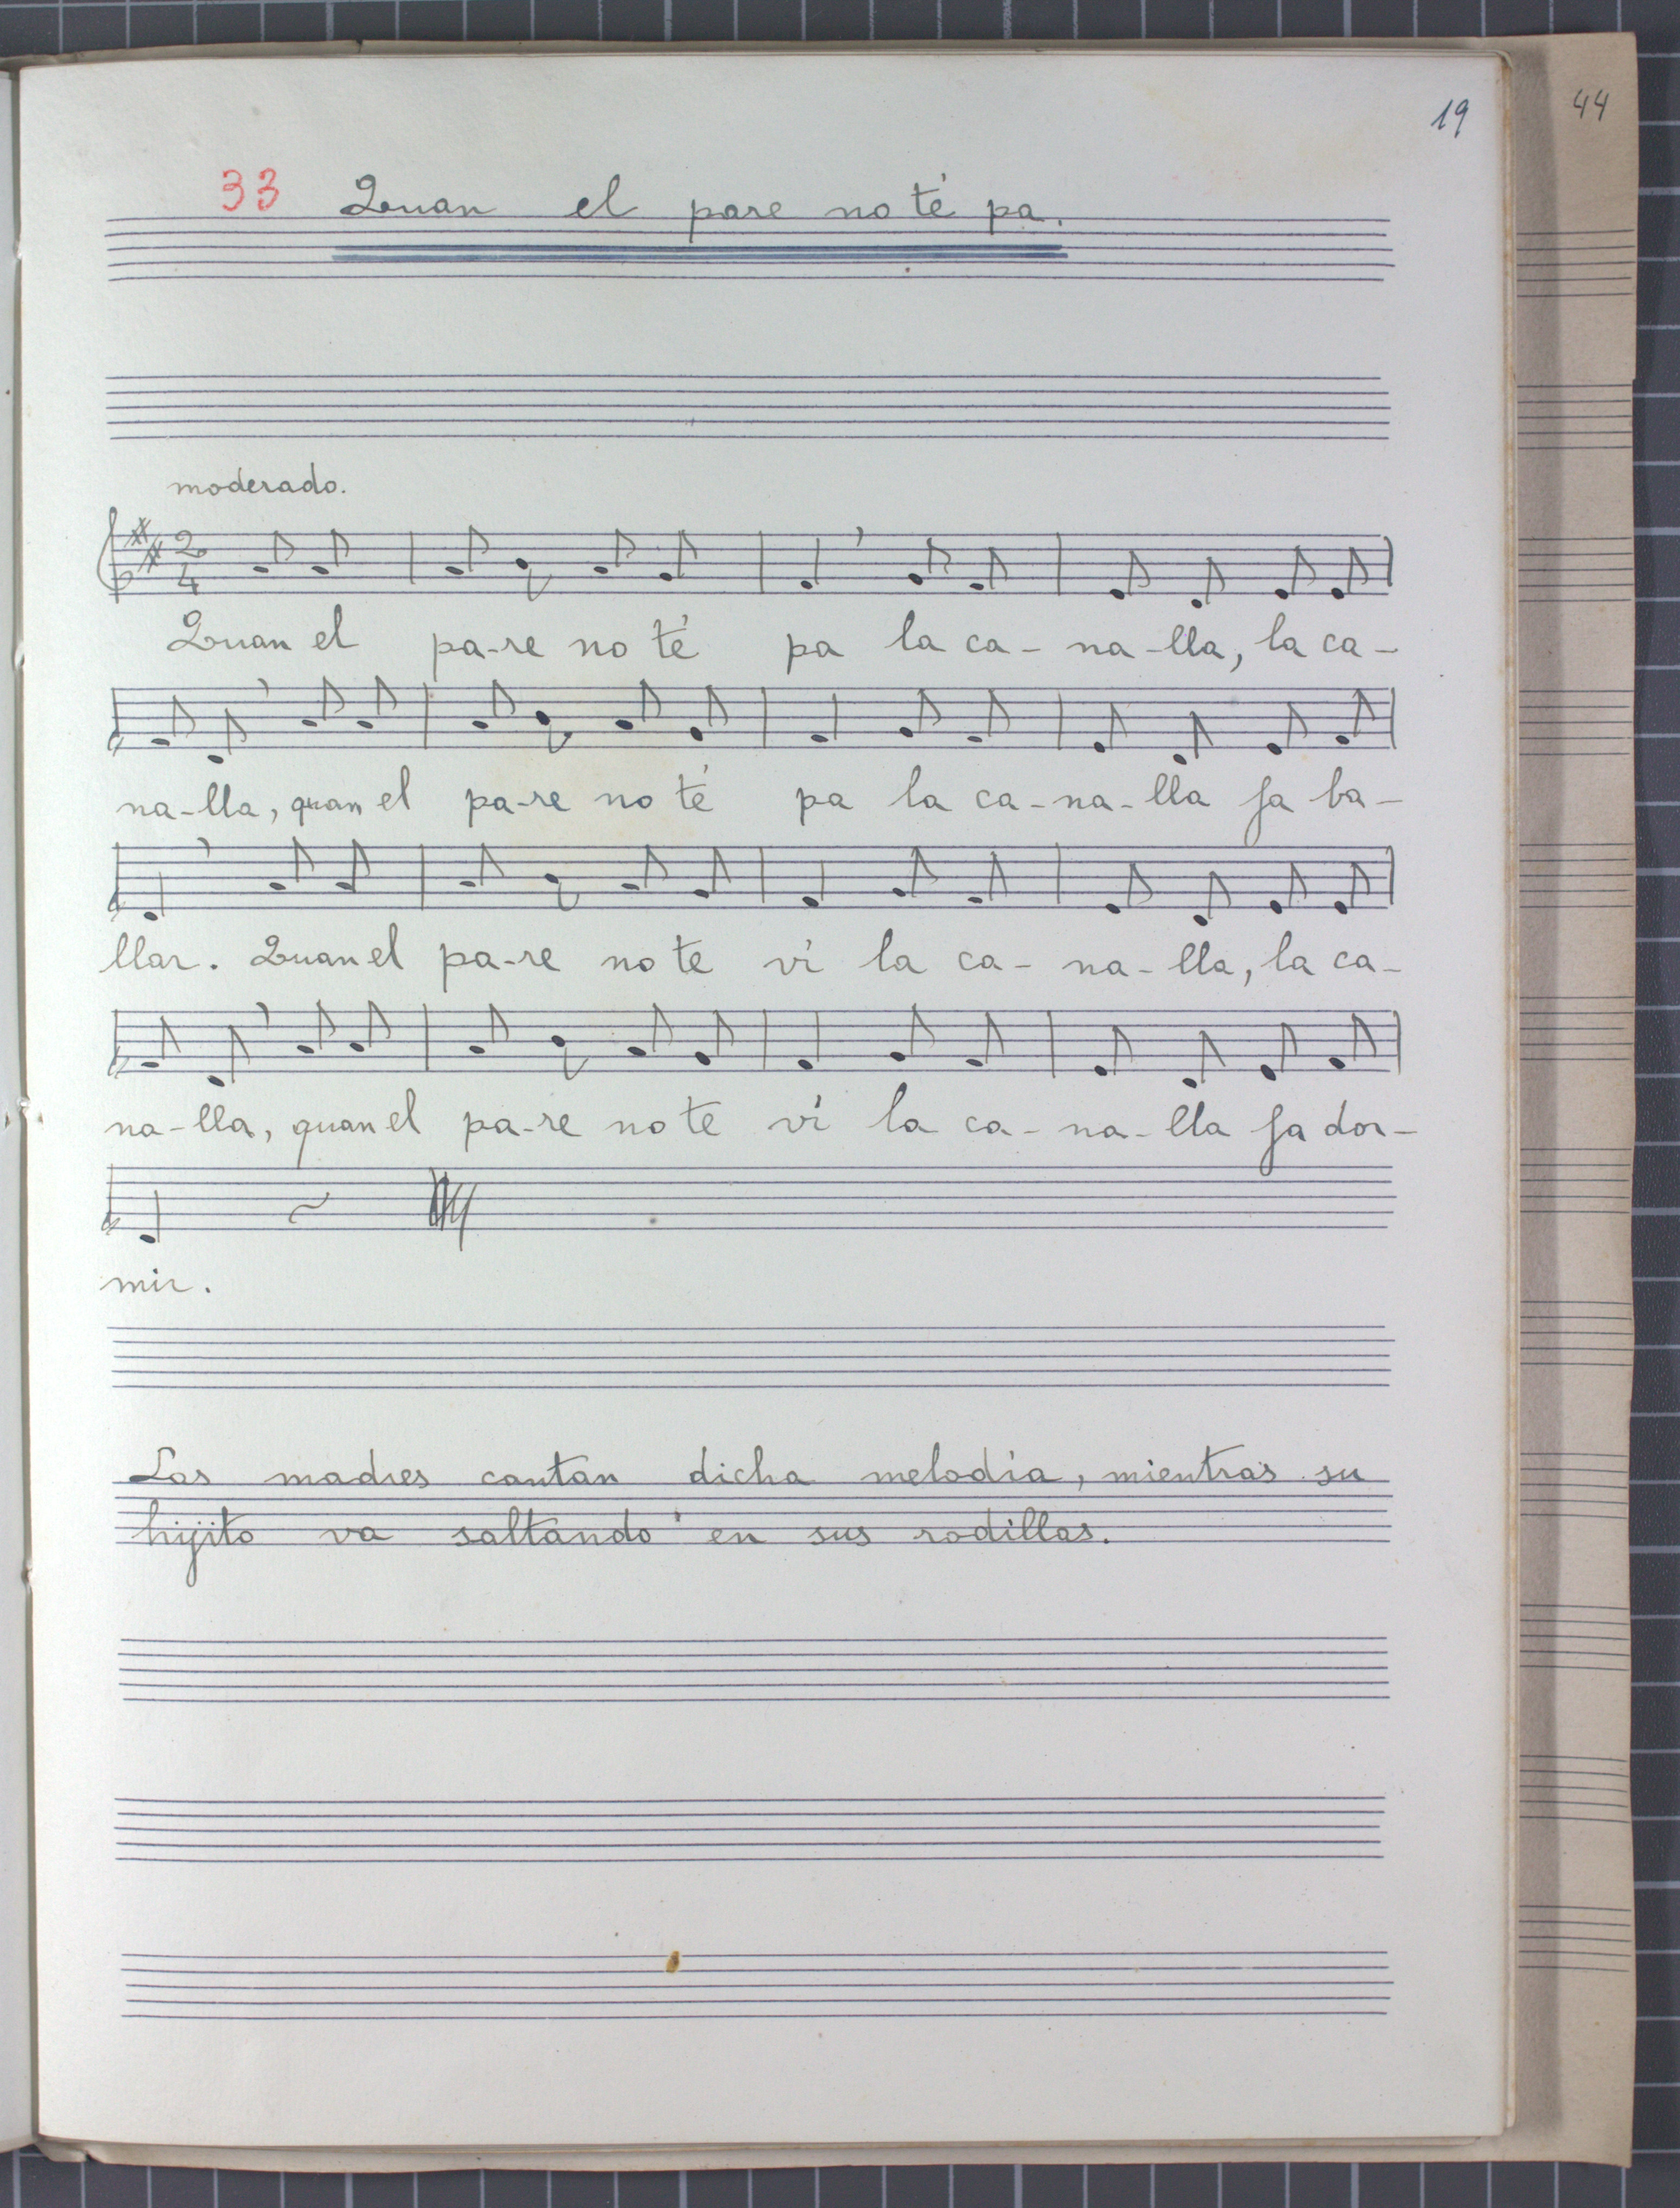 19
44
33 Quan el pare no té pa.
moderado.
2
4
Quan el pa-re no té pa la ca- na-lla, la ca-
na-lla, quan el pa-re no té pa la ca-na-lla fa ba-
llar. Quan el pa-re no te vi la ca- na-lla, la ca-
na-lla, quan el pa-re no te vi la ca-na-lla fa dor-
mir.
Las madres cantan dicha melodía, mientras su
hijito va saltando en sus rodillas.